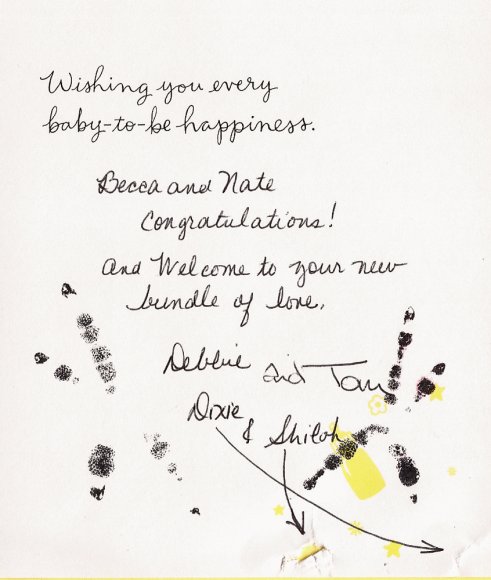 Wishing you every
baby-to-be happiness.
Becca and Nate
Congratulations!
And Welcome to your new
bundle of love,
Debbie and Tom
Dixie
& Shiloh